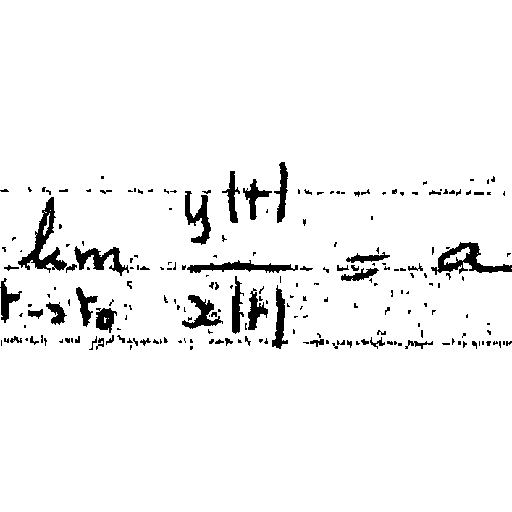 lim t→t₀ y(t)/x(t) = a